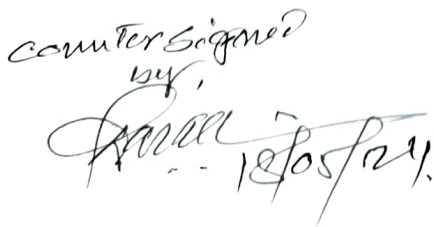 Countersigned
by,
18/05/24.